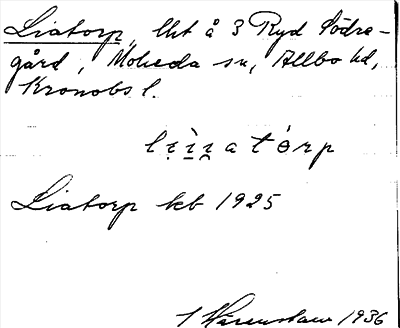 Liatorp, lht å 3 Ryd Södra-
gård, Moheda sn, Allbo hd,
Kronobs l.
li̯ì̱i̯atòrp
Liatorp kb 1925
1936